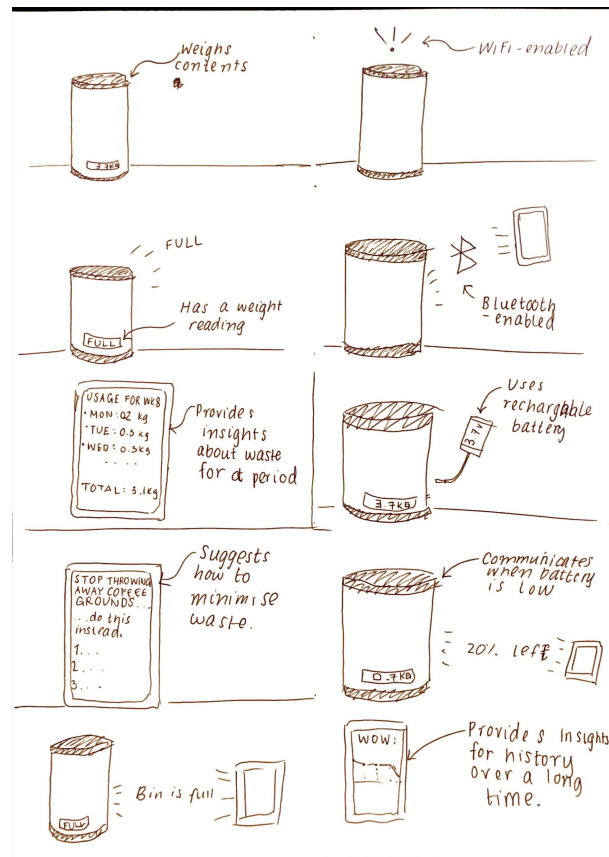 Weighs
contents
3.7KG
WiFi-enabled
FULL
Has a weight
reading
FULL
Bluetooth
-enabled
USAGE FOR WK8
• MON: 02 kg
• TUE: 0.5 kg
• WED: 0.3kg
....
TOTAL: 3.1kg
Provides
insights
about waste
for a period
Uses
rechargable
battery
3.7V
3.7KG
STOP THROWING
AWAY COFFEE
GROUNDS...
...do this
instead.
1...
2...
3...
Suggests
how to
minimise
waste.
Communicates
when battery
is low
20% left
0.7KG
Bin is full
FULL
WOW:
Provides Insights
for history
over a long
time.